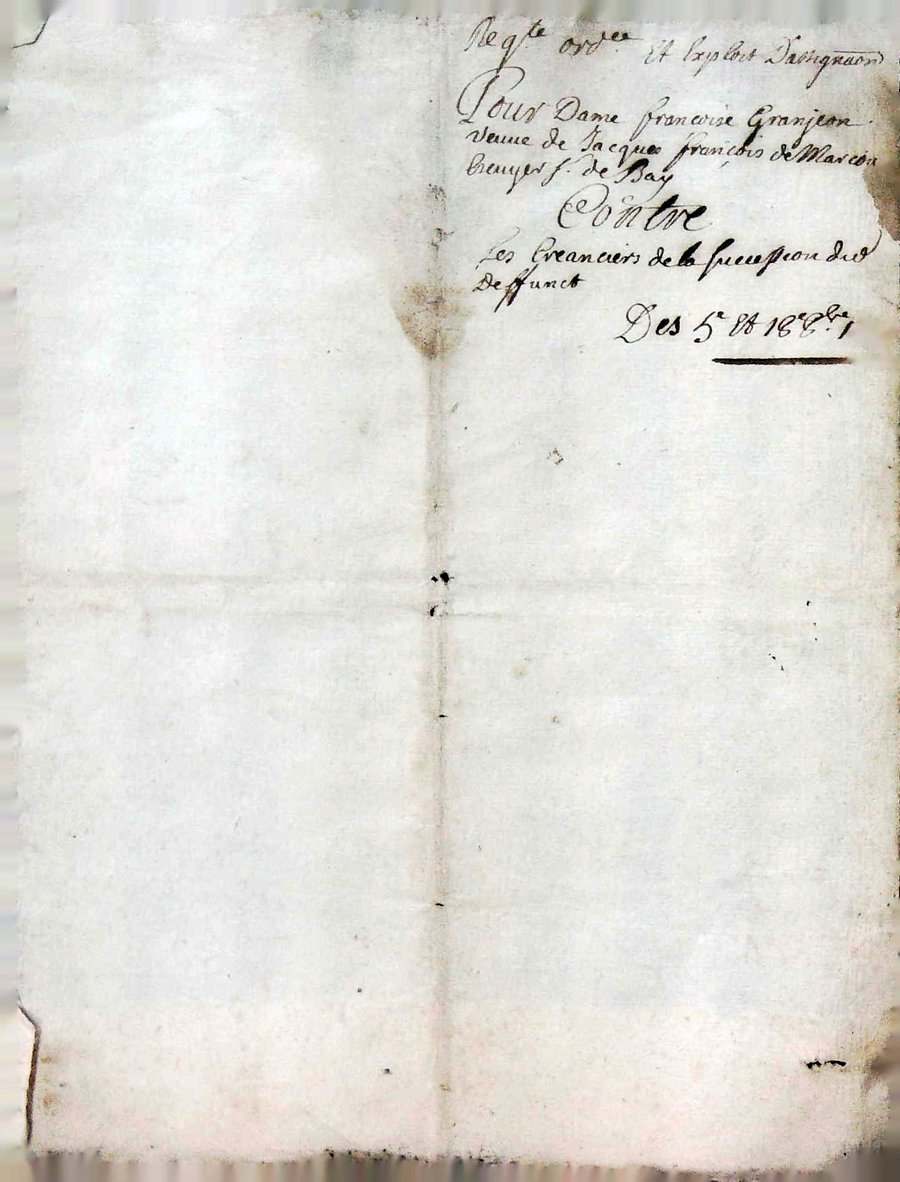 Reqte ordce Et Exploit Dassignaon
Pour Dame francoise Granjeon
veuve de Jacques françois de Marcou
Escuyer Sr. de Bay
Contre
Les Creanciers de la succession dud
deffunct
Des 5e Et 18e 8bre 1